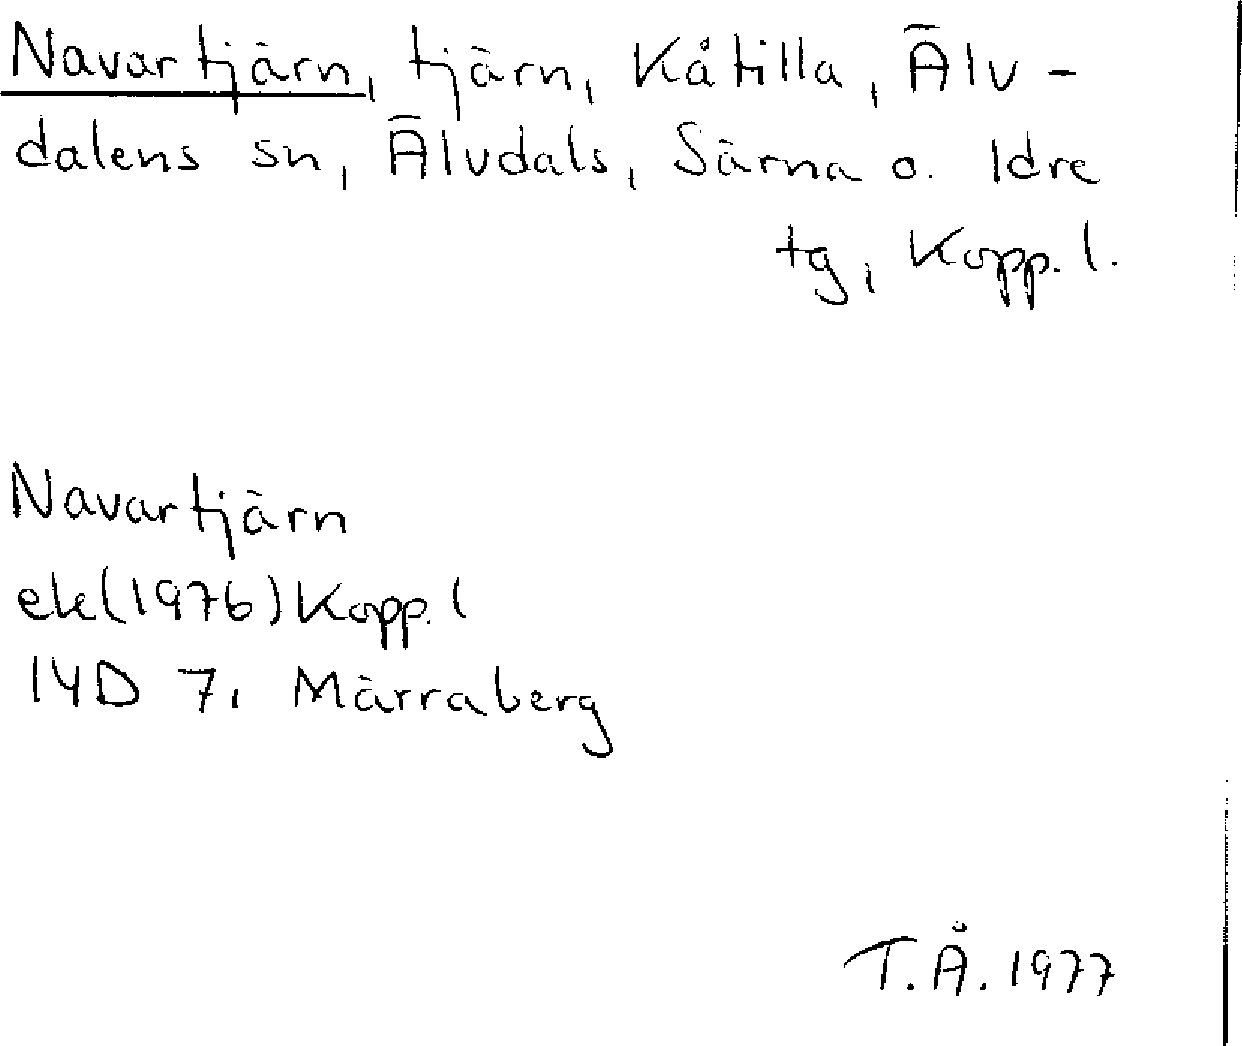 Navartjärn, tjärn, Kåtilla, Älv-
dalens sn, Älvdals, Särna o. Idre
tg, Kopp. l.
Navartjärn
ek(1976)Kopp. l
14D 7i Märraberg
T.Å. 1977